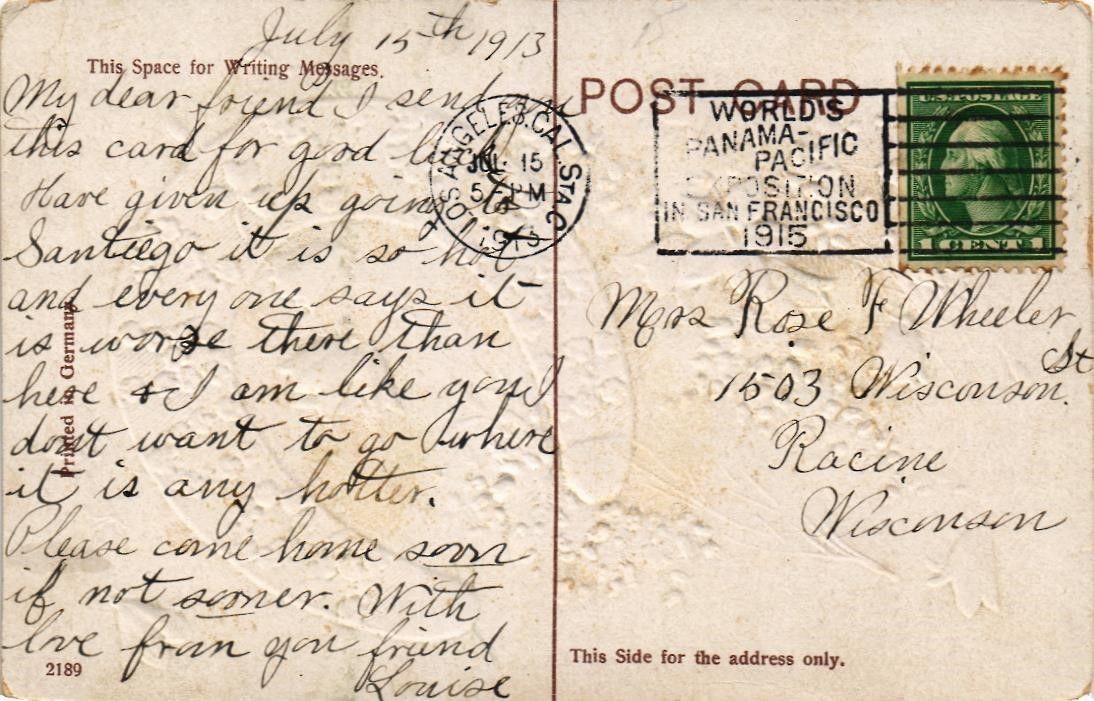 July 15th 1913
This Space for Writing Messages.
My dear friend I send you
this card for good luck
Have given up going to
Santiego it is so hot
and every one says it
is worse there than
here & I am like you I
dont want to go where
it is any hotter.
Please come home soon
if not sooner. With
love from you friend
Louise
2189
Printed in Germany
POST CARD
LOS ANGELES, CAL. STA C
JUL 15
5 PM
1913
WORLD'S
PANAMA-
PACIFIC
EXPOSITION
IN SAN FRANCISCO
1915
U.S. POSTAGE
1 CENT 1
Mrs Rose F Wheeler
1503 Wisconson St.
Racine
Wisconson
This Side for the address only.